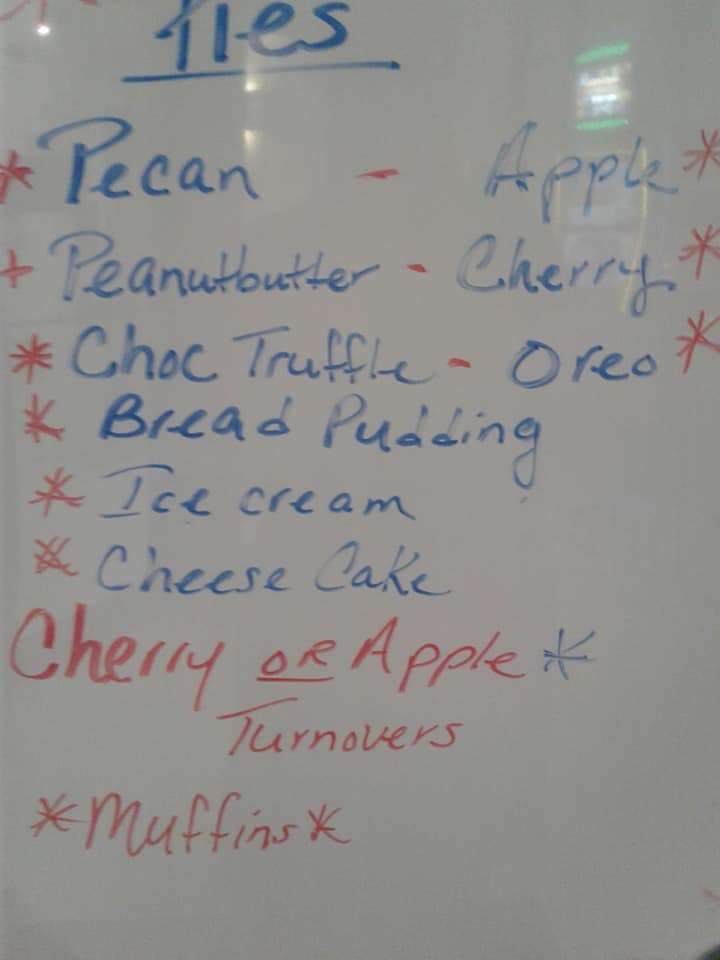 Pies
* Pecan - Apple *
+ Peanutbutter - Cherry *
* Choc Truffle - Oreo *
* Bread Pudding
* Ice cream
* Cheese Cake
Cherry OR Apple *
Turnovers
* Muffins *